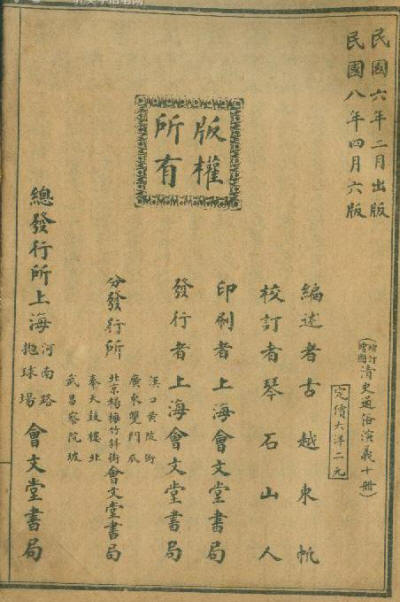 民國六年二月出版
民國八年四月六版
版權
所有
(增訂繪圖清史通俗演義十冊)
定價大洋二元
編述者古越東帆
校訂者琴石山人
印刷者上海會文堂書局
發行者上海會文堂書局
分發行所
漢口黃陂街
廣東雙門底
北京楊梅竹斜街
奉天鼓樓北
武昌察院坡
會文堂書局
總發行所上海
河南路
拋球場
會文堂書局